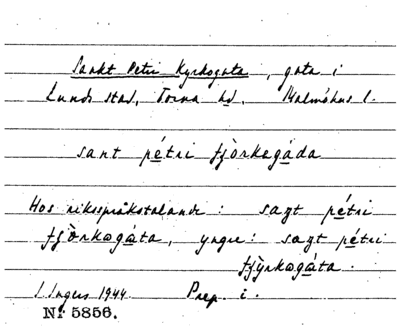 Sankt Petri Kyrkogata, gata i
Lunds stad, Torna hd. Malmöhus l.
sant pétri fjòrkagáda
Hos riksspråkstalande: saŋt pétri
fjòrkagáta, yngre: saŋt pétri
fjỳrkagáta.
I. Ingers 1944. Prep. i.
No 5856.